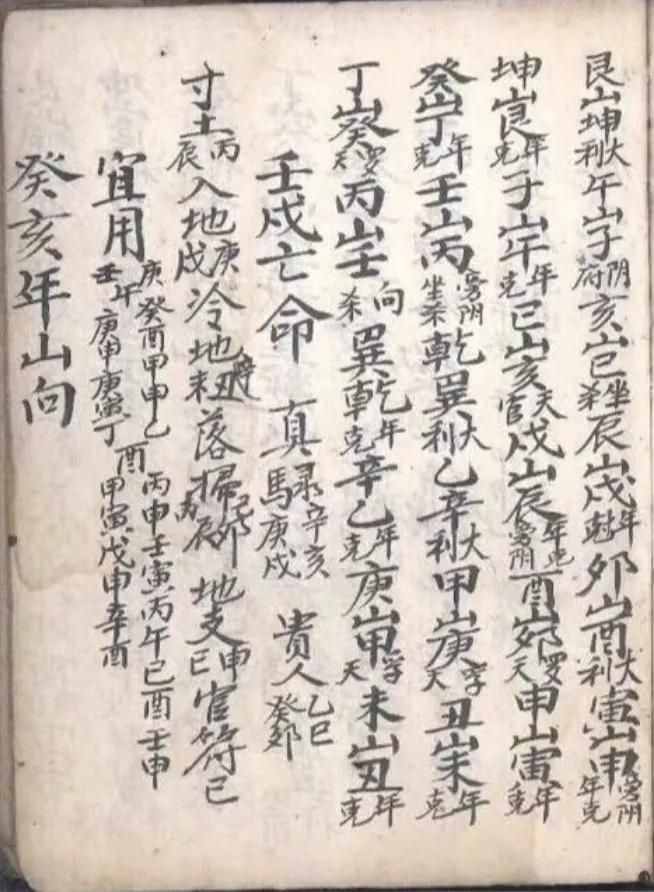 艮山坤大利午山子阴府亥山巳坐杀辰山戌年尅夘山酉大利寅山申旁阴年克
坤山艮年克子山午年克巳山亥天官戌山辰年克旁阴酉山夘罗天申山寅年克
癸山丁年克壬山丙旁阴坐杀乾巽大利乙辛大利甲山庚孛天丑山未年克
丁山癸罗天丙山壬向杀巽乾年克辛乙年克庚山甲孛天未山丑年克
壬戌亡命 真禄辛亥馬庚戌 貴人乙巳癸夘
寸土丙辰入地庚戌冷地耒丑時落掃丙辰夘地支申巳官符巳
宜用庚午壬癸酉甲申乙酉丙申壬寅丙午巳酉壬申
庚申庚寅丁酉甲寅戊申辛酉
癸亥年山向